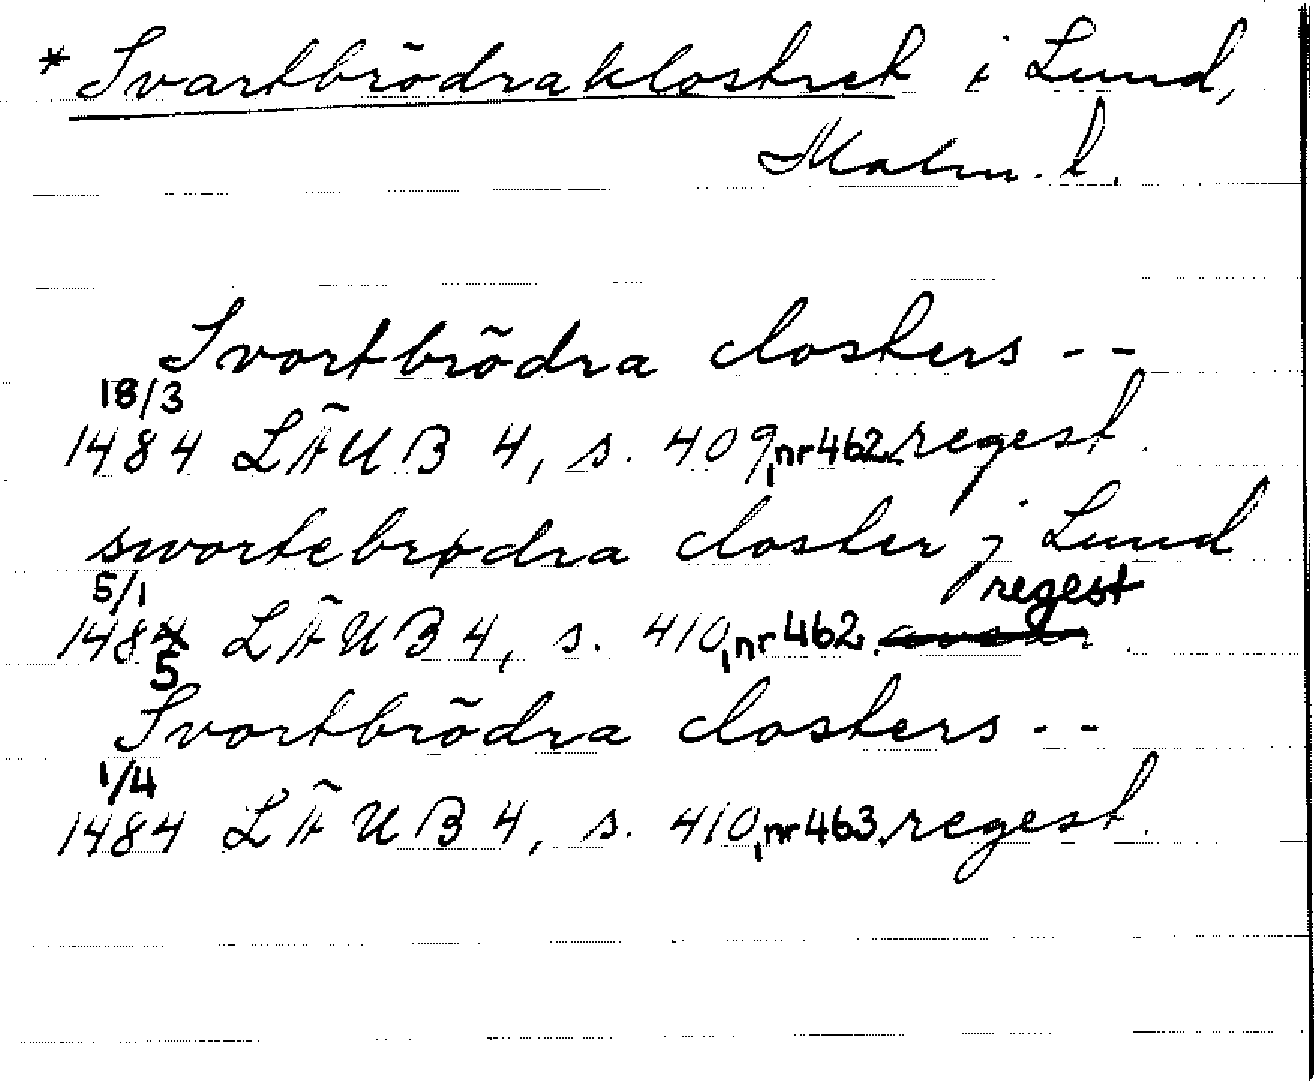 * Svartbrödraklostret i Lund,
Malm. l.
Svortbrödra closters - -
18/3
1484 LÄUB 4, s. 409, nr 462. regest.
swortebrødra closter j Lund
5/1 regest
1485 LÄUB 4, s. 410, nr 462.
Svortbrödra closters - -
1/4
1484 LÄUB 4, s. 410, nr 463. regest.